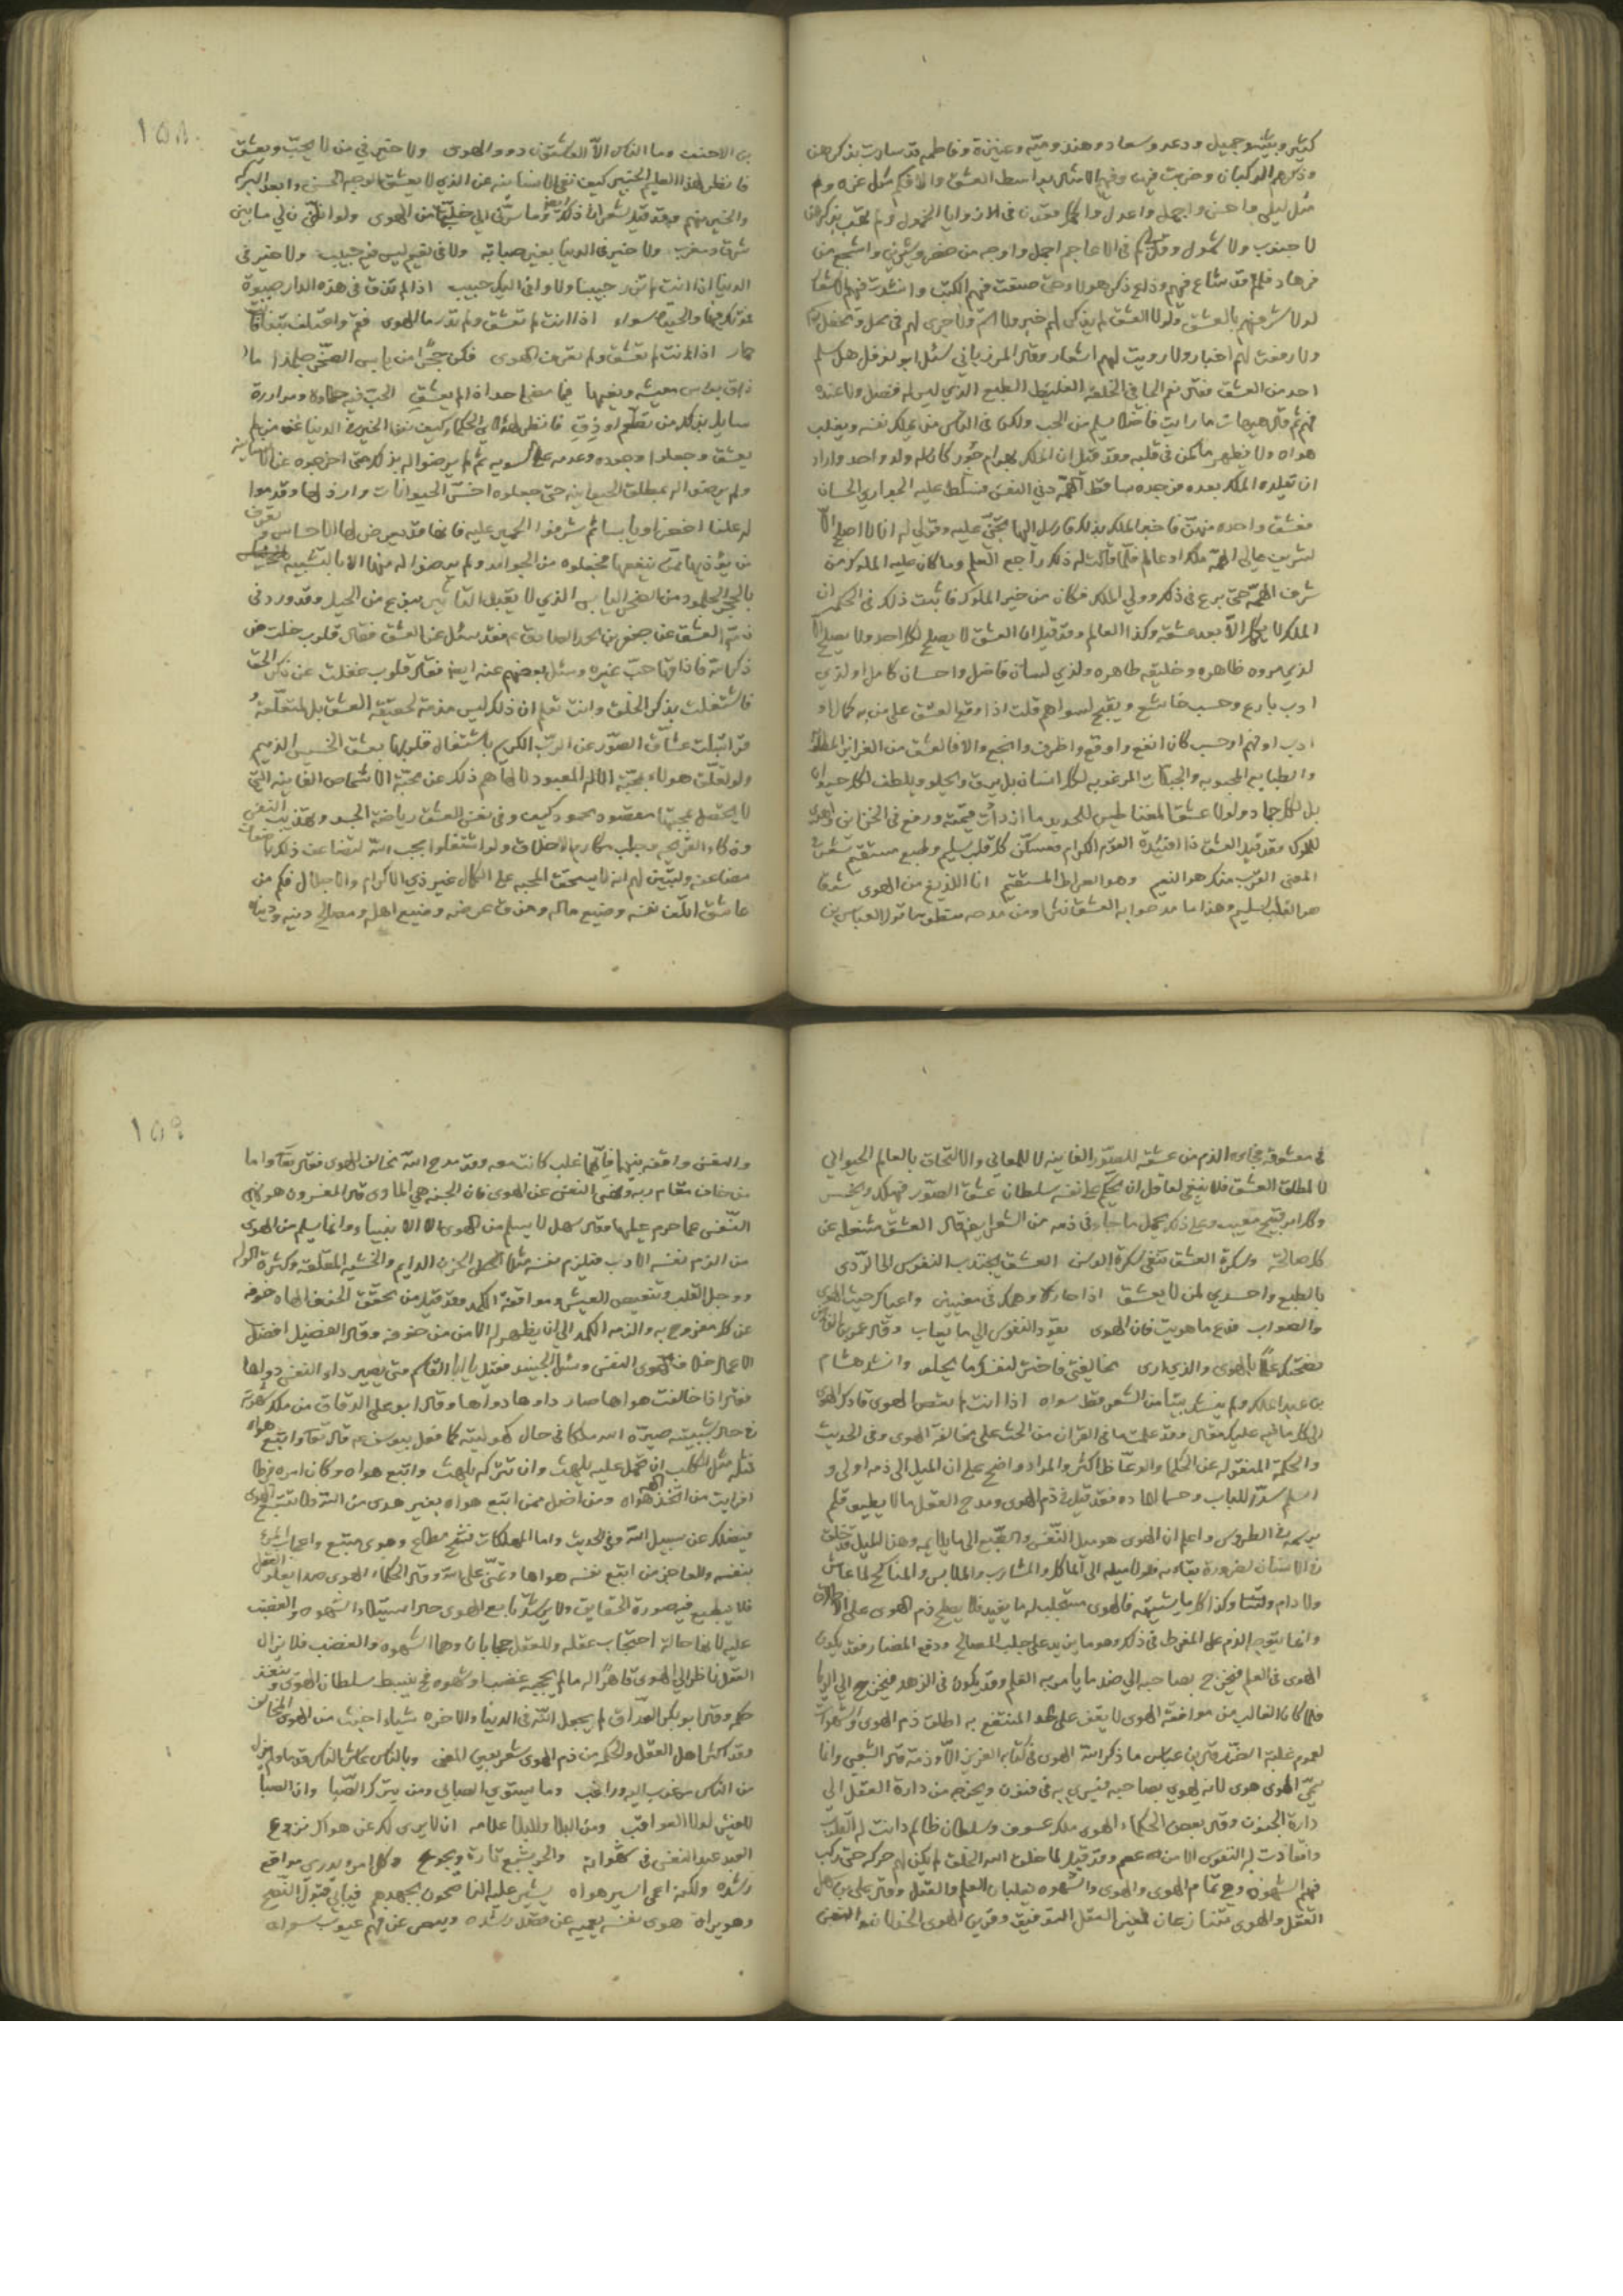 كثير وبثينه وجميل ودعد وسعاد وهند وميّه وعنيزة وفاطمه قد سارت بذكرهن
وذكرهم الركبان وضربت فيهن وفيهم الامثال بواسطة العشق والا فكم مثل عزه وم
مثل ليلى واحسن واجمل واعدل واكمل فقدن في الارزوايا الخمول ولم تهب بذكرهن
لا جنوب ولا شمول وقل كم في الاعاجم اجمل واوجه من خسرو وشيرين واشجع من
فرهاد فلم قد شاع فيهم وذاع ذكر هولا وحتى صنفت فيهم الكتب وانشدت فيهم الاشعار
لولا شرفهم بالعشق ولولا العشق لم يذكر لهم خبر ولا اسم ولا جرى لهم في محل ومحفل
ولا رفعت لهم اخبار ولا رويت لهم اشعار وقال المرزباني سئل ابو نوفل هل يسلم
احد من العشق فقال نعم الجافي الخلقة الغليظ الطبع الذي ليس له فضل ولا عنده
فهم ثم قال هيهات ما رايت فاضلا يسلم من الحب ولكن في الناس من يملك نفسه ويغلب
هواه ولا يظهر ما كمن في قلبه وقد قيل ان الملك بهرام جور كان له ولد واحد واراد
ان تقليده الملك بعده فوجده ساقط الهمّة دني النفس فسلط عليه الجواري الحسان
فعشق واحده منهنّ فاخبر الملك بذلك فارسل اليها تجني عليه وقولي له انا لا اصلح الا
لشريف عالي الهمّة ملك او عالم فلما قالت له ذلك راجع العلم وما كان عليه الملوك من
شرف الهمّة حتى برع في ذلك وولي الملك فكان من خير الملوك فاثبت ذلك في الحكم ان
الملك لا يكمل الا بعد عشقه وكذا العالم وقد قيل ان العشق لا يصلح لكل احد ولا يصلح الا
لذي مروه ظاهره وخليقه طاهره ولذي لسان فاضل واحسان كامل او لذي
ادب بارع وحسب خاشع ويقبح لسواهم قلت اذا وقع العشق على من به كمال او
ادب او فهم او حسب كان انفع واوقع واظرف وانجع والا فالعشق من الغرايز المطلوبة
والطبايع المحبوبه والجبلات المرغوبه لكل انسان بل يرق ويحلو ويلطف لكل حيوان
بل لكل جماد ولولا عشق المغناطيس للحديد ما ازدادت قيمته ورفع في الخزاين
للملوك وقد قيل العشق ذا افئدة القوم الكرام فمسكن كل قلب سليم وطبع مستقيم شعر
المعنى القرب منكر هو النعيم وهو الصراط المستقيم انا اللذيغ من الهوى شغفا
هو القلب السليم وهذا ما مدحوا به العشق نثرا ومن مدحه منظوما قول العباس بن
١٥٨
بن الاحنف وما الناس الا العاشقون ذوو الهوى ولا خير في من لا يحبّ ويعشق
فانظر لهذا العليم الخبير كيف نفى الانسانيه عن الذي لا يعشق الوجه الحسن وابعد البركه
والخير منهم وقد قيل شعرا في ذلك ايضا وما سرّني اني خليّ من الهوى ولو ان لي ما بين
شرق ومغرب ولا خير في الدنيا بغير صبابه ولا في نعيم ليس فيه حبيب ولا خير في
الدنيا اذا انت لم تزر حبيبا ولا وافى اليك حبيب اذا لم تذق في هذه الدار صبوة
فموتك فيها والحياة سواء اذا انت لم تعشق ولم تدر ما الهوى فقم واعتلف تبنا فانت
حمار اذا انت لم تعشق ولم تعرف الهوى فكن حجرا من يابس الصخر جلمدا ما
ذاق بؤس معيشه ونعيمها فيما مضى احد اذا لم يعشق الحب فيه حلاوة ومرارة
سايل بذلك من تطعّم او ذق فانظر لهؤلاء الحكماء كيف نفوا الخير في الدنيا عن من لم
يعشق وجعلوا وجوده وعدمه على السويه ثم لم يرضوا له بذلك حتى اخرجوه عن الانسانيه
ولم يرضوا له بمطلق الحيوانيه حتى جعلوه اخسّ الحيوانات وارذلها وقدموا
له علفا اخضر او يابسا ثم شرفوا الحمير عليه فانها قد يعرض لها الاحساس وتفرق
من يؤذيها ممن ينفعها فجعلوه من الجوامد ولم يرضوا له منها الا بالتشبيه
بالحجر الجلمود من الصخر اليابس الذي لا يقبل التاثير بنوع من الحيل وقد ورد في
ذمّ العشق عن جعفر بن محمد الصادق عم فقد سئل عن العشق فقال قلوب خلت من
ذكر الله فاذاقها حب غيره وسئل بعضهم عنه ايضا فقال قلوب غفلت عن ذكر الحق
فاشتغلت بذكر الخلق وانت تعلم ان ذلك ليس مذمة لحقيقة العشق بل لمتعلّقه
فقد ابتليت عشاق الصوّر عن الرب الكريم باشتغال قلوبها بعشق الخسيس الذميم
ولو تعلّق هولاء بمحبّة الاله المعبود لالهاهم ذلك عن محبّة الاشخاص الفانيه التي
لا يحصل بمحبتها مقصود محمود كيف وفي نفس العشق رياضة الجسد وتهذيب النفس
وذكاء القريحه وجلب مكارم الاخلاق ولو اشتغلوا بحب الله لتضاعف ذلك باضعاف
مضاعفه وليتبيّن لهم انه لا يستحق المحبه على الكمال غير ذي الاكرام والاجلال فكم من
عاشق اتلف نفسه وضيع ماله ومزق عرضه وضيع اهله ومصالح دينه ودنياه
في معشوقه فجاءه الذم من عشقه للصوّر الفانيه لا للمعاني والالتحاق بالعالم الحيواني
لا لمطلق العشق فلا ينبغي لعاقل ان يحكم على نفسه سلطان عشق الصّور فيهلك ويخسر
وكل امر قبيح معيب وعلى ذلك يحمل ما جاء في ذمه من الشعر ايضا قال العشق مشغله عن
كل صالحة وسكرة العشق تنفي سكرة الوسن العشق يجتذب النفوس الى الردى
بالطبع واحسدي لمن لا يعشق اذا حار وهمك في معنيين واعياك حيث الهوى
والصواب فدع ما هويت فان الهوى يقود النفوس الى ما يعاب وقال عمر بن الفارض
نصحتك علما بالهوى والذي ارى مخالفتي فاختر لنفسك ما يحلو وانشد هشام
بن عبد الملك ولم ينشد بيتا من الشعر قط سواه اذا انت لم تعص الهوى قادك الهوى
الى كل ما فيه عليك مقال وقد علمت ما في القران من الحث على مخالفة الهوى وفي الحديث
والحكمة المنقوله عن الحكما والوعاظ اكثر والمراد واضح على ان الميل الى ذمه اولى و
اسلم سدّا للباب وحسما للماده فقد قيل في ذم الهوى ومدح العقل ما لا يطيق قلم
يرسمه في الطروس واعلم ان الهوى هو ميل النّفس والطّبع الى ما يلايمه وهذا الميل قد خلق
في الانسان لضرورة بقاءه فلولا ميله الى المآكل والمشارب والملابس والمناكح لما عاش
ولا دام وكذا كل ما يشتهيه فالهوى مستجلب له ما يفيد فلا يصلح ذم الهوى على الاطلاق
وانما يتوجه الذم على المفرط في ذلك وهو ما يزيد على جلب المصالح ودفع المضار فقد يكون
الهوى في العلم فيخرج بصاحبه الى ضد ما يامر به العلم وقد يكون في الزهد فيخرج الى الريا
فلما كان الغالب من موافقة الهوى لا يقف على حد المنتفع به اطلق ذم الهوى والشهوات
لعموم غلبة الضّرر قال بن عباس ما ذكر الله الهوى في كتابه العزيز الا وذمّه قال الشعبي وانما
سمّي الهوى هوى لانه يهوي بصاحبه فيسري به في فنون ويخرجه من دارة العقل الى
دارة الجنون وقال بعض الحكماء الهوى ملك عسوف وسلطان ظالم دانت له القلوب
وانقادت له النفوس الا من عصم وقد قيل لما خلق الله الخلق لم يكن لهم حركه حتى ركب
فيهم الشهوة وهي تمام الهوى والهوى والشهوه يغلبان العلم والعقل وقال علي بن سهل
العقل والهوى يتنازعان فمعين العقل التوفيق وقرين الهوى الخذلان والنفس
١٥٩
والنفس واقفه بينهما فايّهما غلب كانت معه وقد مدح الله مخالف الهوى فقال تعالى واما
من خاف مقام ربه ونهى النفس عن الهوى فان الجنه هي الماوى قال المفسرون هو نهي
النّفس عما حرم عليها وقال سهل لا يسلم من الهوى الا الانبياء وانما يسلم من الهوى
من الزم نفسه الادب فيلزم نفسه مثل الحزن الدايم والخشيه المقلقه وكثرة
ووجل القلب وتنغيص العيش وموافقة الكمد وقد قيل من تحقق الخوف الهاه خوفه
عن كل مفروح به والزمه الكمد الى ان يظهر له الامن من خوفه وقال الفضيل افضل
الاعمال خلاف هوى النفس وسئل الجنيد فقيل يا ابا القاسم متى يصير داء النفس دواها
فقال اذا خالفت هواها صار داوها دواها وقال ابو علي الدقاق من ملك شهوته
في حال شبيبته صيّره الله ملكا في حال كهوليته كما فعل بيوسف عم قال تعالى واتبع هواه
فمثله مثل الكلب ان تحمل عليه يلهث وان تتركه يلهث واتبع هواه وكان امره فرطا
افرايت من اتخذ الهه هواه ومن اضل ممن اتبع هواه بغير هدى من الله ولا تتبع الهوى
فيضلك عن سبيل الله وفي الحديث واما المهلكات فشح مطاع وهوى متبع واعجاب المرء
بنفسه والعاجز من اتبع نفسه هواها وتمنّى على الله وقال الحكماء الهوى صدا يعلو العقل
فلا يطبع فيه صورة الحقايق ولا يرشد تابع الهوى حال استيلاء الشهوه والغضب
عليه لانها حالة احتجاب عقله وللعقل حجابان وهما الشهوه والغضب فلا يزال
العقل ناظرا الى الهوى قاهرا له ما لم يحجبه غضب او شهوه فحينئذ ينبسط سلطان الهوى وينفذ
حكمه وقال ابو بكر الوراق لم يجعل الله في الدنيا والاخره شياء اخبث من الهوى المخالف
وقد اكثر اهل العقل والحكمه من ذم الهوى شعر يعين المعنى وبالناس عاش الناس قدما ولم يزل
من الناس مرغوب اليه وراغب وما يستوي الصابي ومن يترك الصّبا وان الصبا
للعيش لولا العواقب ومن البلا وللبلا علامه ان لا يرى لك عن هواك نزوع
العبد عبد النفس في شهواته والحر يشبع تارة ويجوع وكل امرء يدري مواقع
رشده ولكنه اعمى اسير هواه يشير عليه الناصحون بجهدهم فيابى قبول النّصح
وهو يراه هوى نفسه يعميه عن قصد رشده ويبصر عن فهم عيوب سواه